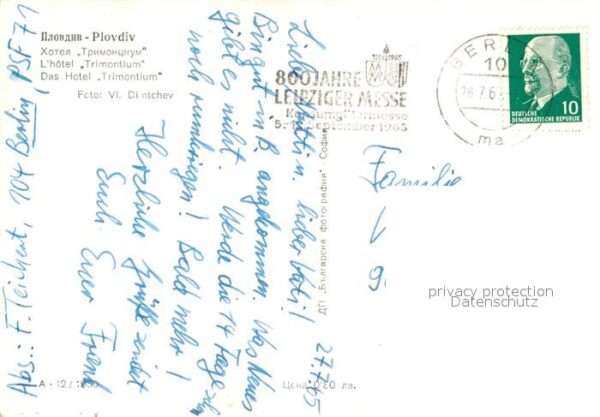 Пловдив - Plovdiv
Хотел „Тримонциум"
L'hôtel „Trimontium"
Das Hotel „Trimontium"
Foto: Vl. Dimtchev
Abs.: F. Teichert, 104 Berlin, PSF 71
27.7.65
Liebe Mutti, lieber Vati!
Bin gut in B angekommen. Was Neues
gibt es nicht. Werde die 14 Tage
noch rumbringen! Bald mehr!
Herzliche Grüße sendet
Euch Euer Frank
ДП „Българска фотография" - София
А - 12 / 1960
Цена 0'60 лв.
800 JAHRE
LEIPZIGER MESSE
Konsumgütermesse
September 1965
BERLIN
10
28.7.6
ma
10
DEUTSCHE
DEMOKRATISCHE REPUBLIK
Familie
9.
privacy protection
Datenschutz